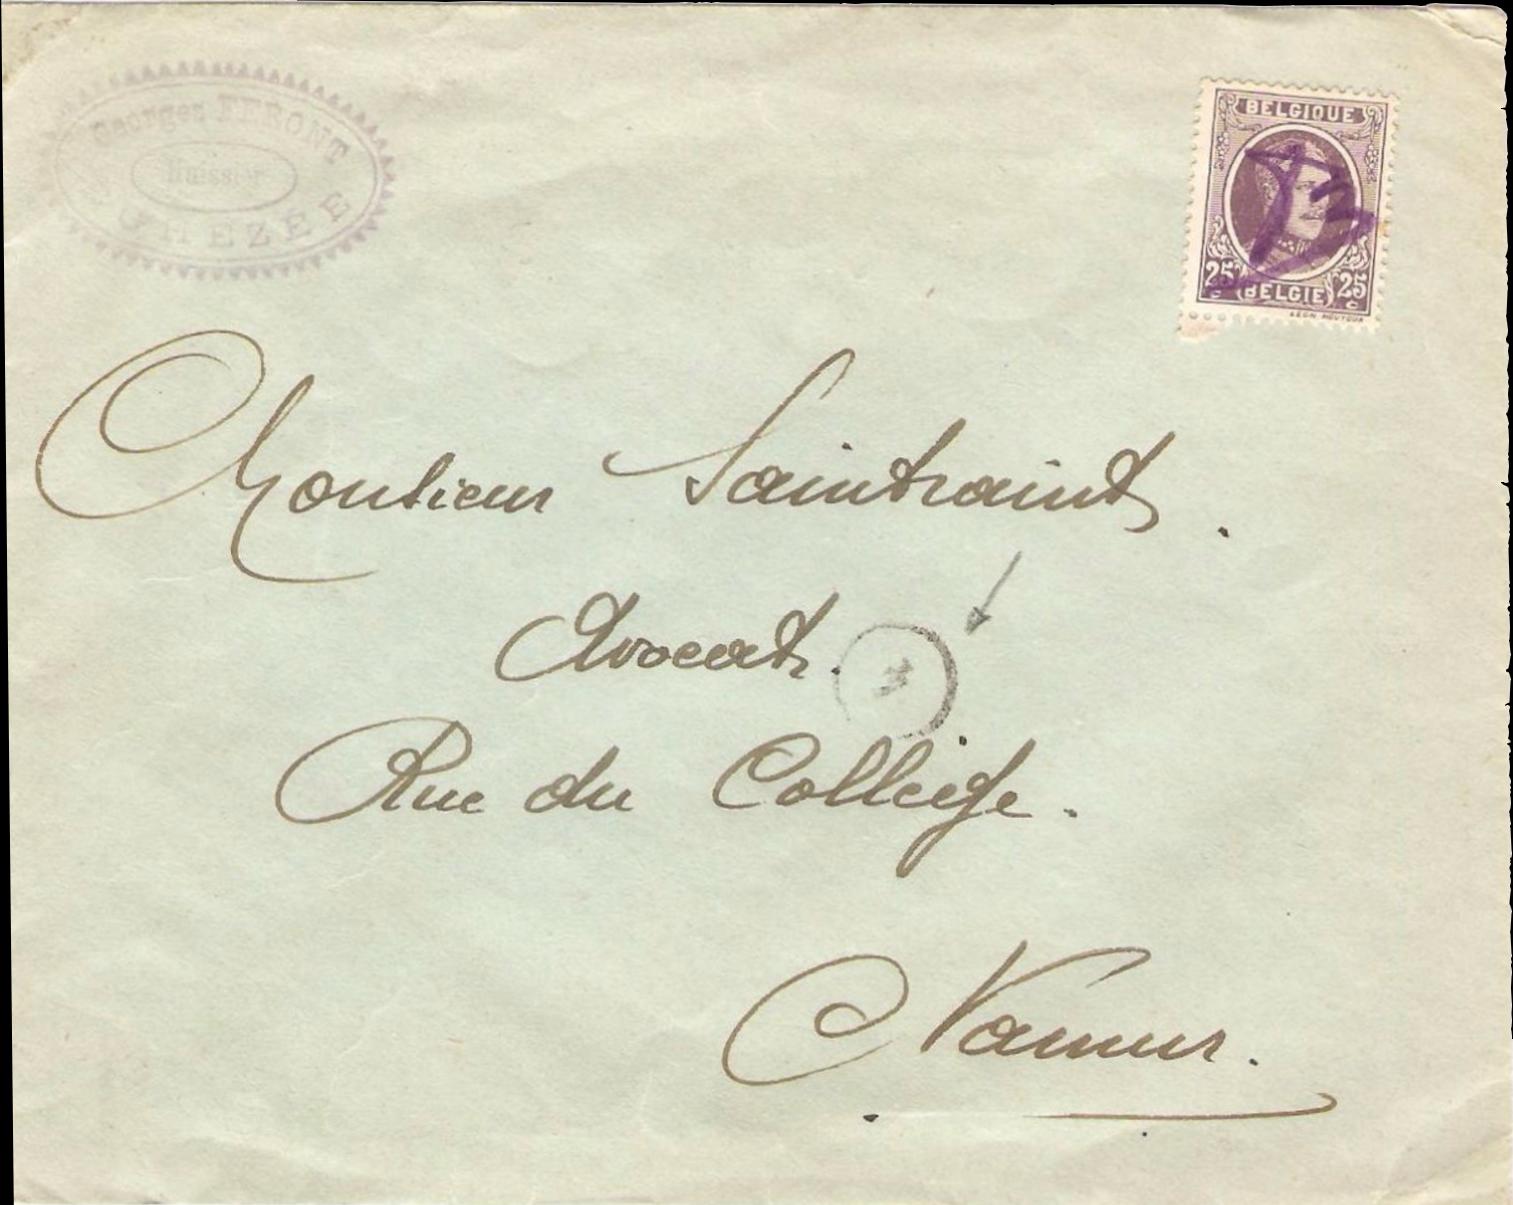 Georges FERONT
Huissier
BELGIQUE
25 25
C BELGIE C
LEON HOUYOUX
Monsieur Saintraint.
Avocat.
Rue du Collège.
Namur.